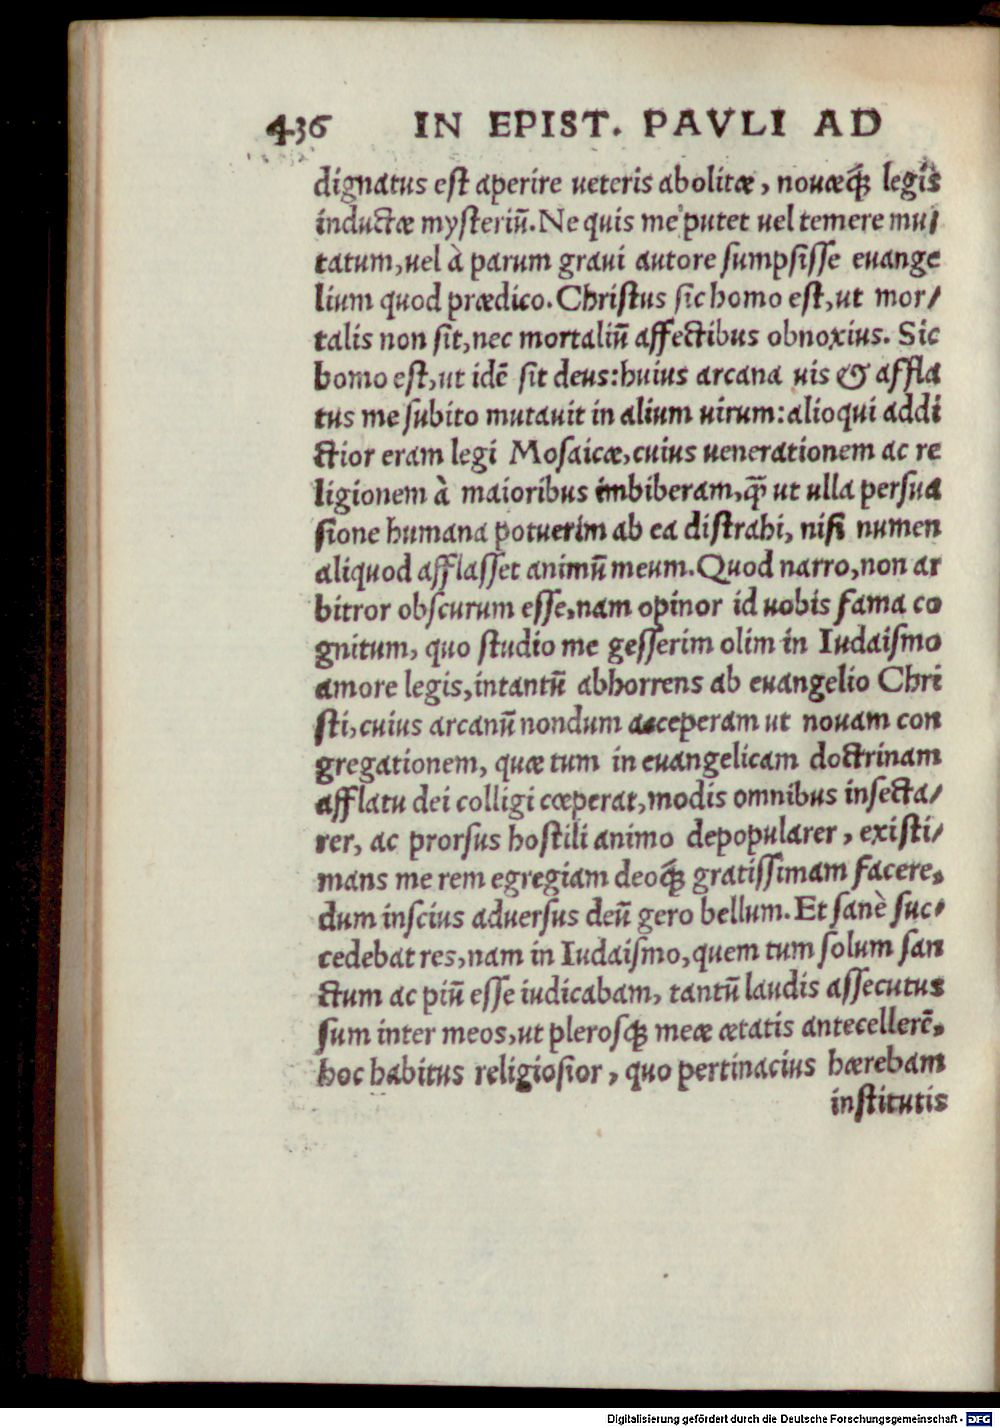 436 IN EPIST. PAVLI AD
dignatus est aperire ueteris abolitæ, nouæq́; legis
inductæ mysteriũ. Ne quis me putet uel temere mu/
tatum, uel à parum graui autore sumpsisse euange
lium quod prædico. Christus sic homo est, ut mor/
talis non sit, nec mortaliũ affectibus obnoxius. Sic
homo est, ut idẽ sit deus: huius arcana uis & affla
tus me subito mutauit in alium uirum: alioqui addi
ctior eram legi Mosaicæ, cuius uenerationem ac re
ligionem à maioribus imbiberam, q̃ ut ulla persua
sione humana potuerim ab ea distrahi, nisi numen
aliquod afflasset animũ meum. Quod narro, non ar
bitror obscurum esse, nam opinor id uobis fama co
gnitum, quo studio me gesserim olim in Iudaismo
amore legis, intantũ abhorrens ab euangelio Chri
sti, cuius arcanũ nondum acceperam ut nouam con
gregationem, quæ tum in euangelicam doctrinam
afflatu dei colligi cœperat, modis omnibus insecta/
rer, ac prorsus hostili animo depopularer, existi/
mans me rem egregiam deoq́; gratissimam facere,
dum inscius aduersus deũ gero bellum. Et sanè suc/
cedebat res, nam in Iudaismo, quem tum solum san
ctum ac piũ esse iudicabam, tantũ laudis assecutus
sum inter meos, ut plerosq; meæ ætatis antecellerẽ,
hoc habitus religiosior, quo pertinacius hærebam
institutis
Digitalisierung gefördert durch die Deutsche Forschungsgemeinschaft - DFG